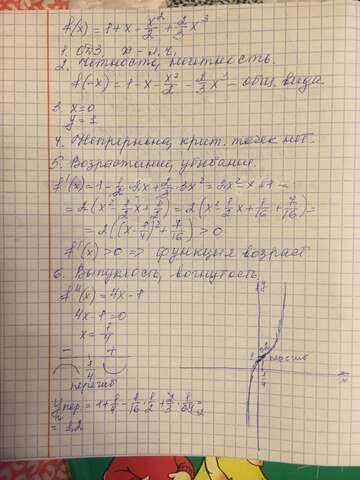 f(x) = 1 + x - x²/2 + 2/3 x³
1. ОДЗ. x - л.ч.
2. Четность, нечётность.
f(-x) = 1 - x - x²/2 - 2/3 x³ - общ. вида
3. x = 0
y = 1
4. Непрерывна, крит. точек нет.
5. Возрастание, убывание.
f'(x) = 1 - 1/2 · 2x + 2/3 · 3x² = 2x² - x + 1 =
= 2(x² - 1/2 x + 1/2) = 2(x² - 1/2 x + 1/16 + 7/16) =
= 2((x - 1/4)² + 7/16) > 0
f'(x) > 0 => функция возраст
6. Выпуклость, вогнутость
f''(x) = 4x - 1
4x - 1 = 0
x = 1/4
- +
1/4
перегиб
y пер. = 1 + 1/4 - 1/16 · 1/2 + 2/3 · 1/64 ≈
≈ 1,2
y
1
перегиб
1/4
x